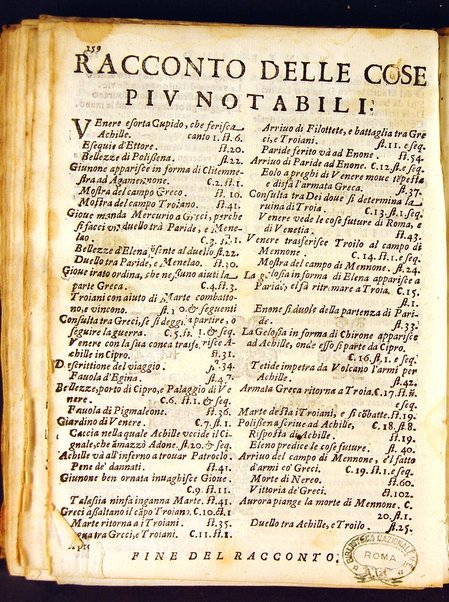 259
RACCONTO DELLE COSE
PIV NOTABILI:
VEnere esorta Cupido, che ferisca
Achille. canto 1. st. 6.
Esequie d'Ettore. st.20.
Bellezze di Polissena. st.22.
Giunone apparisce in forma di Clitemne-
stra ad Agamennone. C.2. st.1.
Mostra del campo Greco. st.10.
Mostra del campo Troiano. st.41.
Gioue manda Mercurio a Greci, perche
si facci vn duello tra Paride, e Mene-
lao. C.3. st.1.
Bellezze d'Elena, uscente al duello st.22.
Duello tra Paride, e Menelao. st.30.
Gioue irato ordina, che nessuno aiuti la
parte Greca. C.4. st.3.
Troiani con aiuto di Marte combatto-
no, e vincono. st.10. & seguenti
Consulta tra Greci, se si deggia partire, o
seguire la guerra. C.5. st.1. & seq.
Venere con la sua conca trasferisce A-
chille in Cipro. st.31.
Descrittione del viaggio. st.34.
Fauola d'Egina. st.47.
Bellezze, porto di Cipro, e Palaggio di Ve
nere. C.6. st.1. & seq.
Fauola di Pigmaleone. st.
Giardino di Venere. C.7. st.1.
Caccia nella quale Achille vccide il Ci-
gnale, che amazzò Adone. st.20. & seq.
Achille và all'inferno a trouar Patroclo.
Pene de' dannati. st.41.
Giunone ben ornata inuaghisce Gioue.
C.9. st.11.
Talassia ninfa inganna Marte. st.41.
Greci assaltano il campo Troiano. C.10. st.1
Marte ritorna a i Troiani. st.35.
tra Greci, e Troiani. C.11. st.1.
Arriuo di Filottete, e battaglia tra Gre
ci, e Troiani. st.11. e seq.
Paride ferito và ad Enone. st.54.
Arriuo di Paride ad Enone. C.12. st. e seq.
Eolo a preghi di Venere moue tempesta
e disfà l'armata Greca. st.37.
Consulta tra Dei doue si determina la
ruina di Troia. C.13. st.1. seq.
Venere vede le cose future di Roma, e
di Venetia. st.43.
Venere trasferisce Troilo al campo di
Mennone. C. 14. st.1. e seq.
Mostra del campo di Mennone. st.24.
La gelosia in forma di Elena apparisce a
Paride, e'l fà ritornare a Troia. C.15.
st.1.
Enone si duole della partenza di Pari-
de. st.33.
La Gelosia in forma di Chirone apparisce
ad Achille, onde esso si parte da Cipro.
C.16. st.1. e seq.
Tetide impetra da Volcano l'armi per
Achille. st.42.
Armata Greca ritorna a Troia. C.17. st.
e seq.
Marte desta i Troiani, e si combatte. st.19.
Polissena scriue ad Achille, C. 18. st.8.
Risposta di Achille. st.
Eleno predice le cose future. st. 40.
Arriuo del campo di Mennone, e'l fatto
d'armi cò Greci. C.19. st.1. e seq.
Morte di Nereo. st.60.
Vittoria de' Greci. st.102.
Aurora piange la morte di Mennone. C.
Duello tra Achille, e Troilo. st.25.
FINE DEL RACCONTO.
BIBLIOTECA NAZIONALE
ROMA